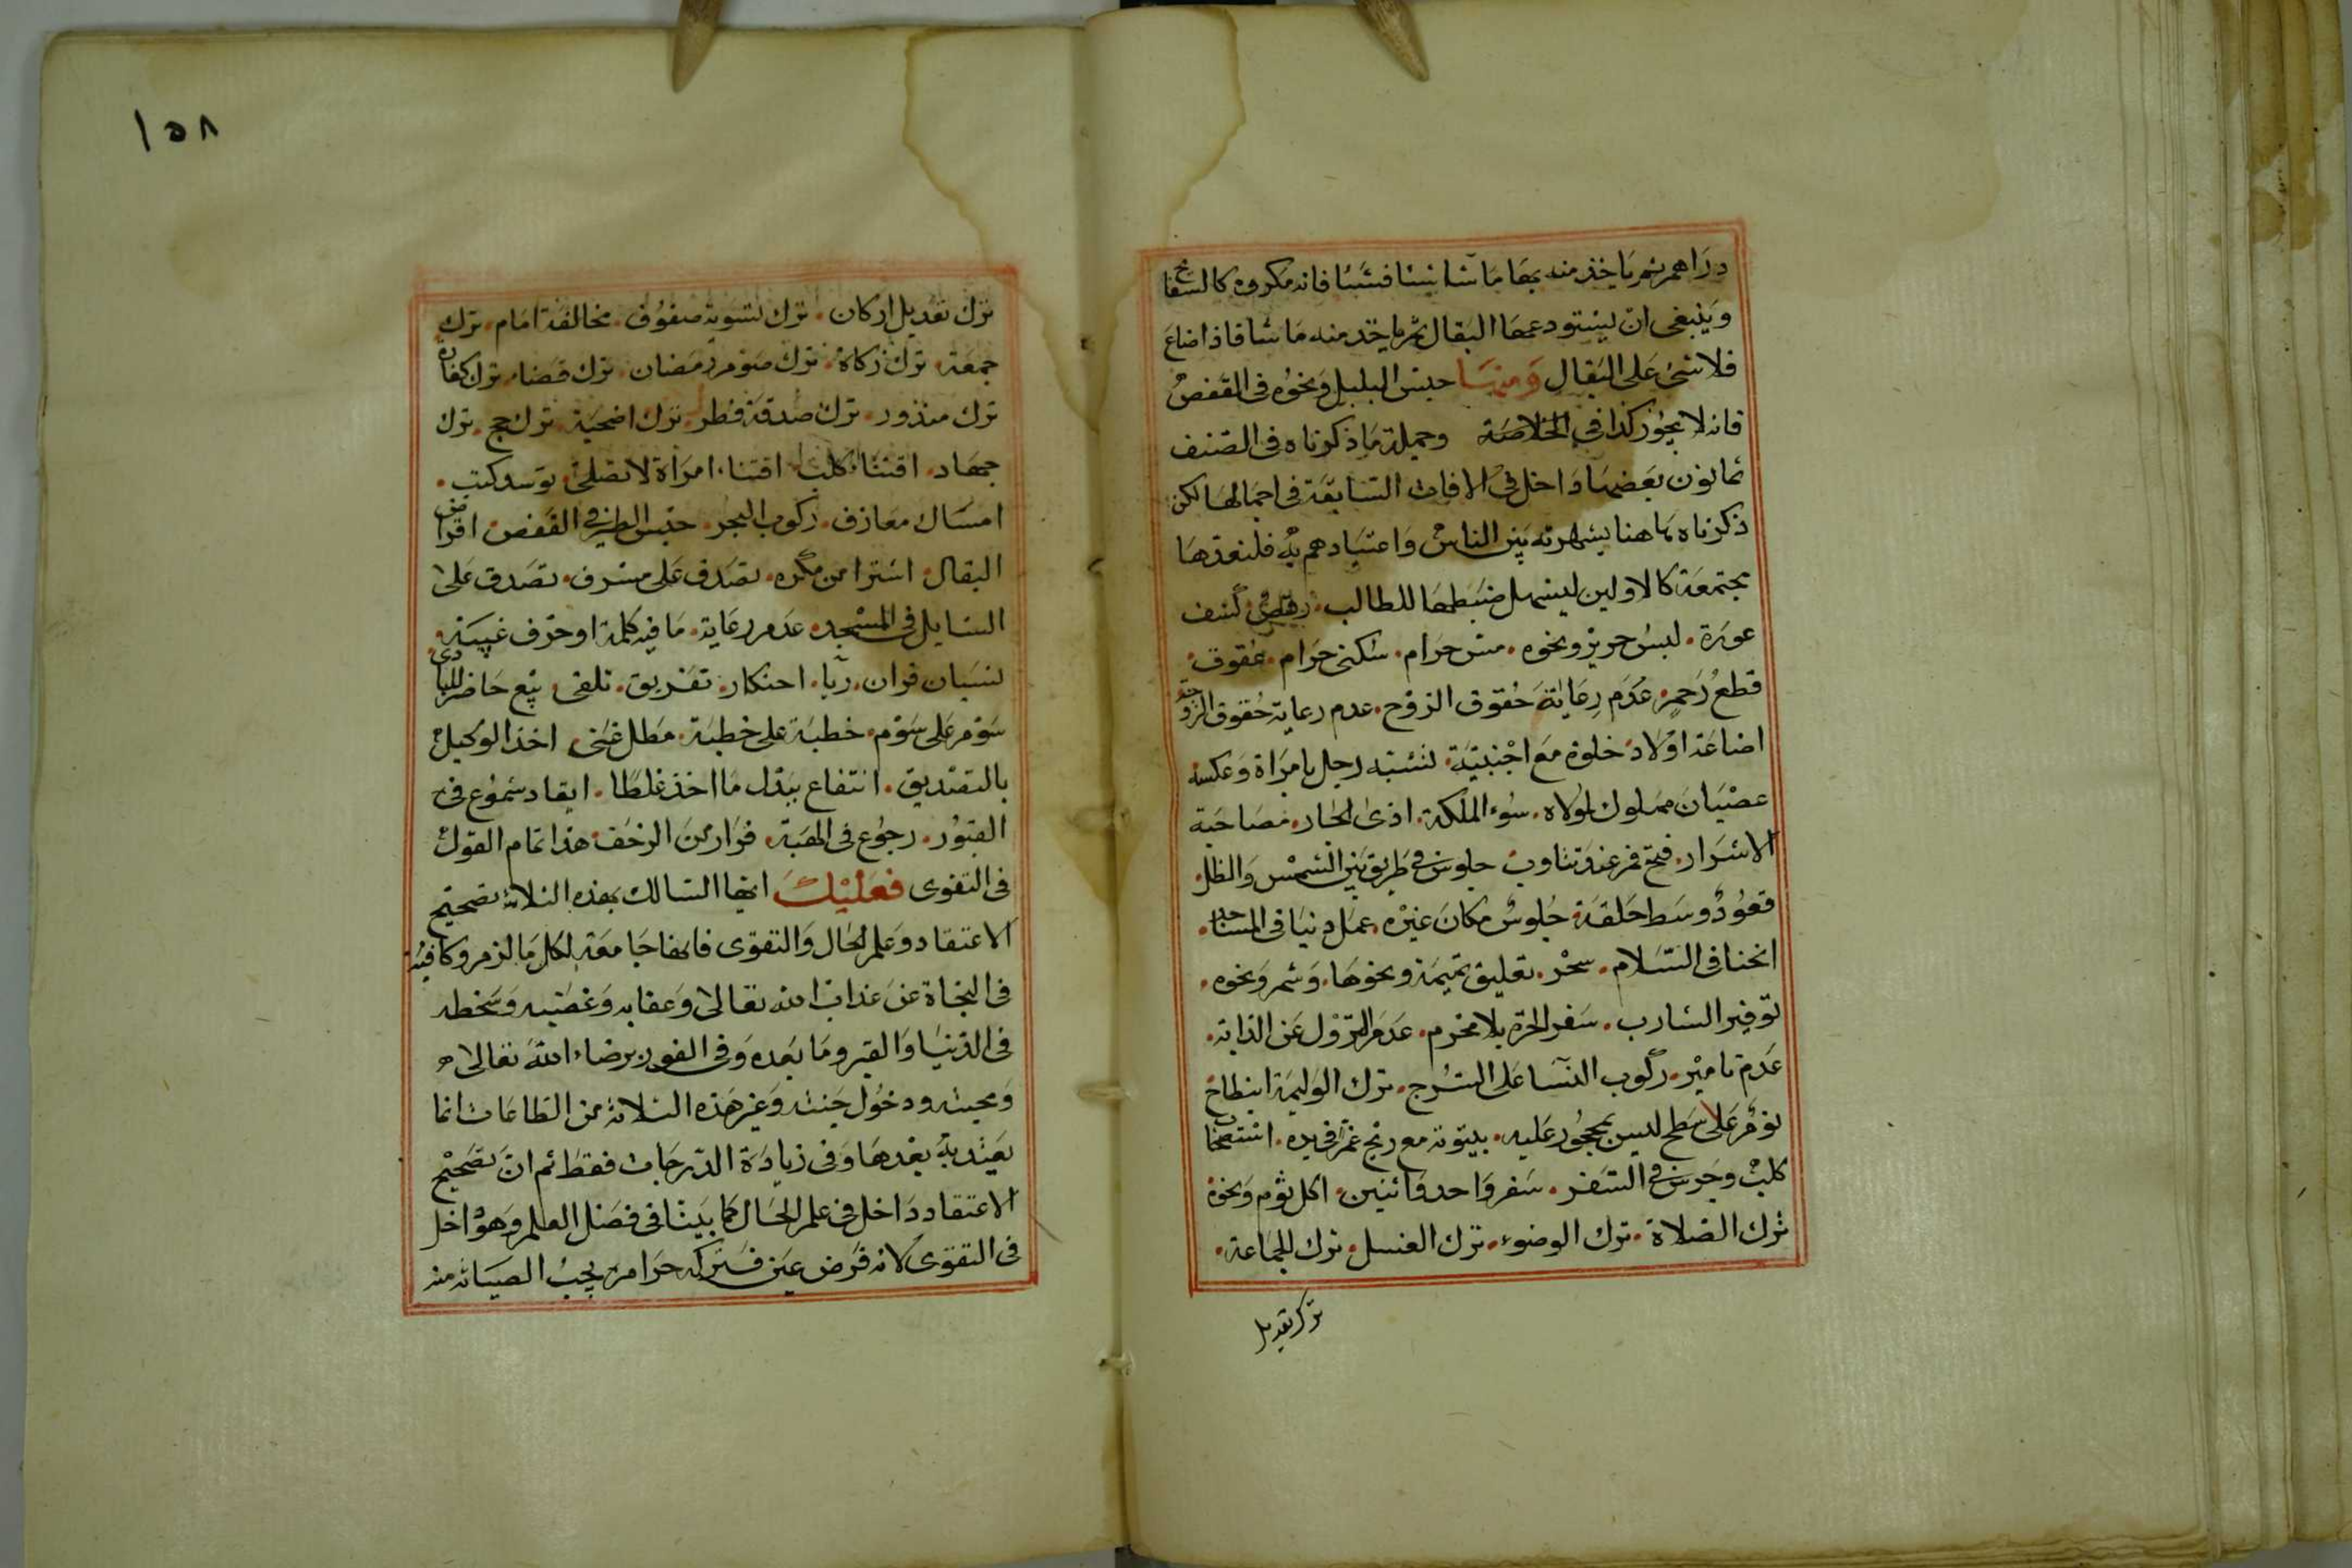 دراهم ثم ياخذ منه بها ما شا شيئا فشيئا فانه مكروه كالسفاتج
وينبغى ان يستودعها البقال ثم ياخذ منه ما شا فاذا ضاع
فلا شئ على البقال ومنها حبس البلبل ونحوه فى القفص
فانه لا يجوز كذا فى الخلاصة وجملة ما ذكرناه فى الصنف
ثمانون بعضها داخل فى الافات السابقة فى اجمالها لكن
ذكرناه هاهنا لشهرته بين الناس واعتيادهم به فلنعدها
مجتمعة كالاولين ليسهل ضبطها للطالب رقص كشف
عورة لبس حرير ونحوه مس حرام سكنى حرام عقوق
قطع رحم عدم رعاية حقوق الزوج عدم رعاية حقوق الزوجة
اضاعة اولاد خلوة مع اجنبية تشبه رجل بامراة وعكسه
عصيان مملوك لمولاه سوء الملكة اذى الجار مصاحبة
الاشرار فتح فم عند تثاوب جلوس فى طريق بين الشمس والظل
قعود وسط حلقة جلوس مكان غيره عمل دنيا فى المساجد
انحنا فى السلام سحر تعليق تميمة ونحوها وشم ونحوه
توفير الشارب سفر الحرة بلا محرم عدم النزول عن الدابة
عدم تامير ركوب النسا على السرج ترك الوليمة انبطاح
نوم على سطح ليس بمحجور عليه بيتوتة مع ريح غمر فى يده استصحاب
كلب وجرس فى السفر سفر واحد واثنين اكل ثوم ونحوه
ترك الصلاة ترك الوضوء ترك الغسل ترك للجماعة
ترك تعديل
١٥٨
ترك تعديل اركان ترك تسوية صفوف مخالفة امام ترك
جمعة ترك زكاة ترك صوم رمضان ترك قضا ترك كفارة
ترك منذور ترك صدقة فطر ترك اضحية ترك حج ترك
جهاد اقتنا كلب اقتنا امراة لا تصلى توسد كتب
امساك معازف ركوب البحر حبس الطير فى القفص اقراض
البقال اشترا من مكره تصدق على مسرف تصدق على
السايل فى المسجد عدم رعاية ما فيه كلمة او حرف غيبة
نسيان قران ربا احتكار تفريق تلقى بيع حاضر للبادى
سوم على سوم خطبة على خطبة مطل غنى اخذ الوكيل
بالتصديق انتفاع ببدل ما اخذ غلطا ايقاد شموع فى
القبور رجوع فى الهبة فرار من الزحف هذا تمام القول
فى التقوى فعليك ايها السالك بهذه الثلاثة تصحيح
الاعتقاد وعلم الحال والتقوى فانها جامعة لكل ما لزم وكافية
فى النجاة عن عذاب الله تعالى وعقابه وغضبه وسخطه
فى الدنيا والقبر وما بعده وفى الفوز برضاء الله تعالى
ومحبته ودخول جنته وغير هذه الثلاثة من الطاعات انما
يعتد به بعدها وفى زيادة الدرجات فقط ثم ان تصحيح
الاعتقاد داخل فى علم الحال كما بينا فى فصل العلم وهو داخل
فى التقوى لانه فرض عين فتركه حرام يجب الصيانة منه